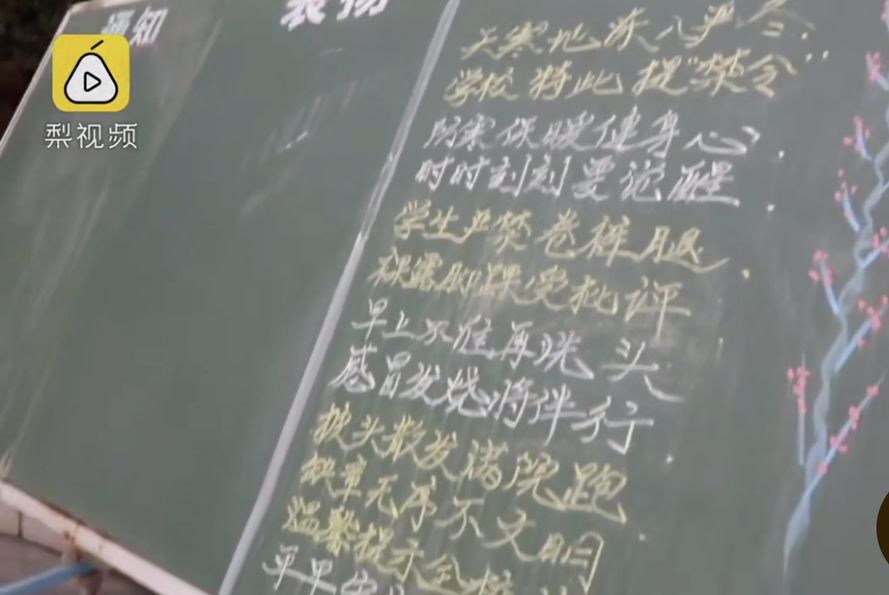 通知
表扬
梨视频
天寒地冻入严冬.
学校特此提“禁令”
防寒保暖健身心,
时时刻刻要记醒.
学生严禁卷裤腿,
裸露脚踝受批评
早上不准再洗头
感冒发烧将伴行.
披头散发满院跑
缺章无序不文明.
温馨提示全校
平平安